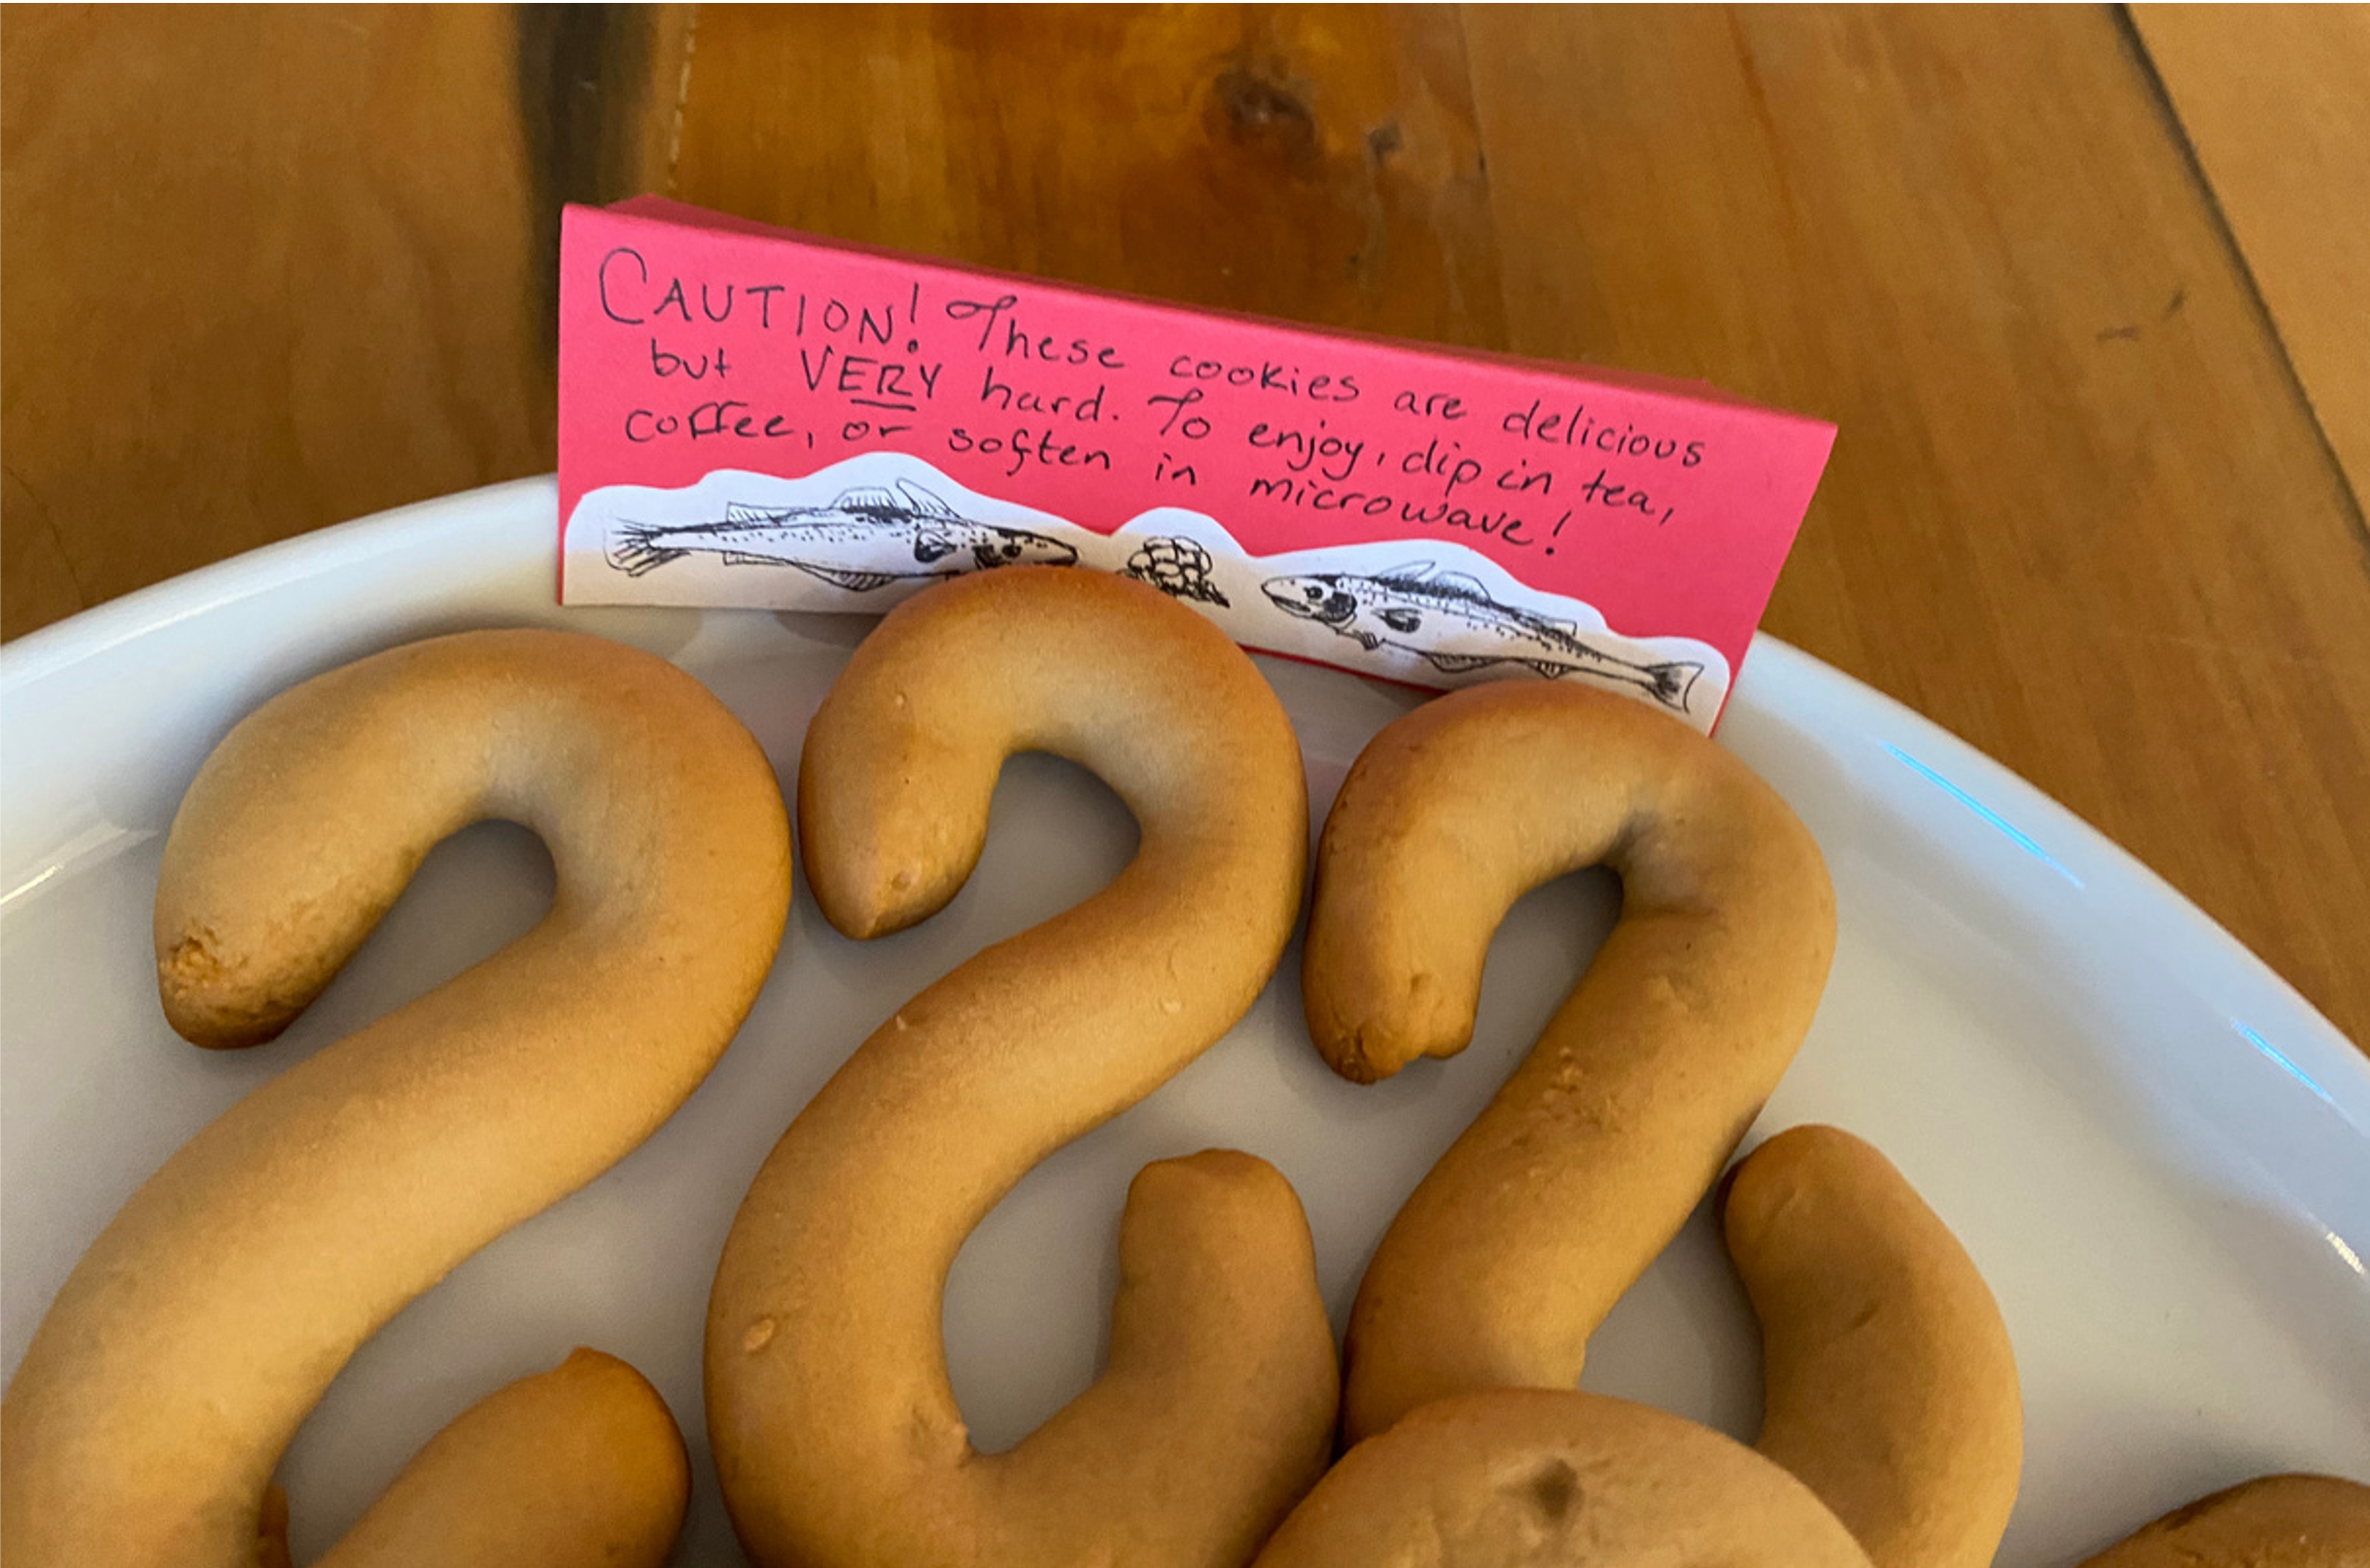 CAUTION! These cookies are delicious
but VERY hard. To enjoy, dip in tea,
coffee, or soften in microwave!